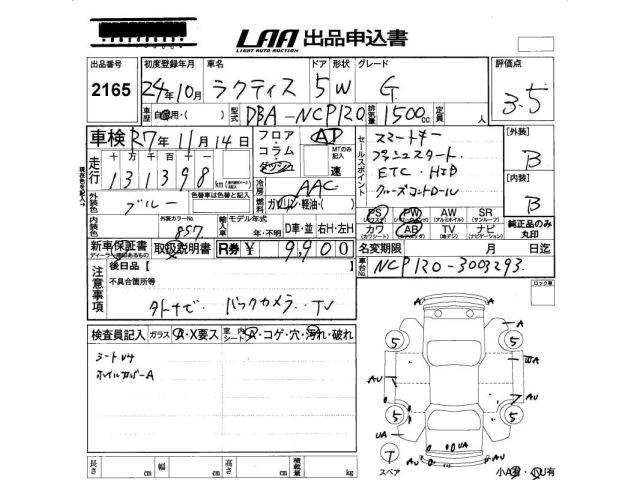 LAA 出品申込書
LIGHT AUTO AUCTION
出品番号 初度登録年月 車名 ドア 形状 グレード 評価点
2165 24年10月 ラクティス 5 W G 3.5
車歴 自家用・( ) 型式 DBA-NCP120 排気量 1500cc 定員 人
車検 R7年 11月 14日 フロア・コラム・ AT
MTのみ記入 速
スマートキー
プッシュスタート
ETC HID
クルーズコントロール
セールスポイント
[外装] B
[内装] B
走行 十万 千百十 131398 km
冷房 AAC
外装色 ブルー 色替車は色替と記入 燃料 ガソリン・軽油・( )
外装カラーNo. 8S7 輸入車 モデル年式 年・不明 D車・並 右H・左H
PS PW AW SR
カワ AB TV ナビ
純正品のみ丸印
新車保証書 取扱説明書 R券 ¥ 9,900 名変期限 月 日迄
ディーラー捺印あるもの
車台No. NCP120-3003293
注意事項 後日品【
不具合箇所等
外ナビ バックカメラ TV
ロック車
検査員記入 ガラス A・X要ス 室内シート A・コゲ・穴・汚れ・破れ
シートV4
ホイルカバーA
A
5 5
WA
AU
AU
5 5
UA
UA
T
スペア
AU AU
小A有・小U有
長さ cm 幅 cm 高さ cm 積載量 kg